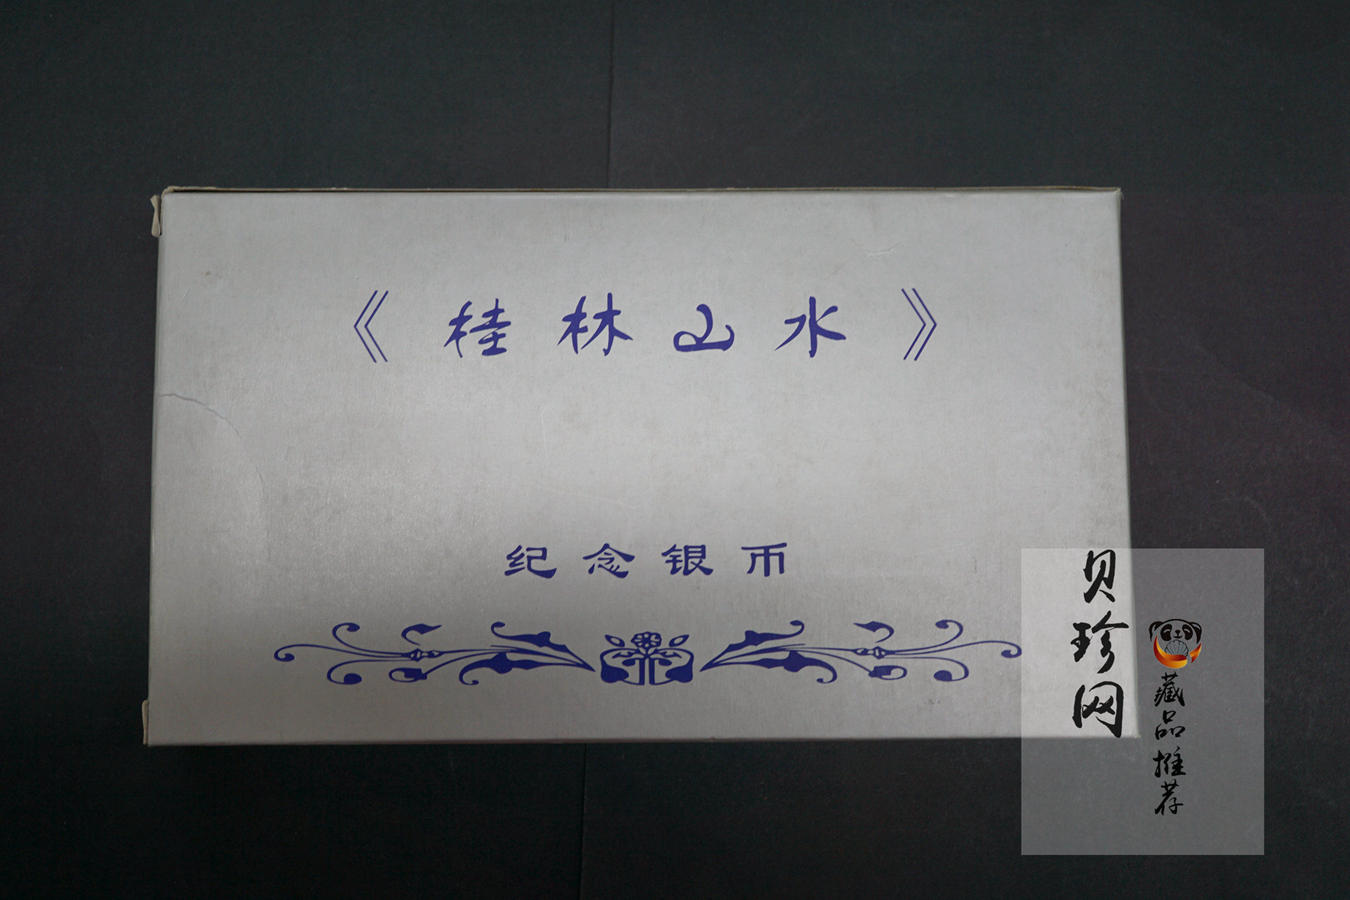 《桂林山水》
纪念银币
贝珍网
藏品推荐